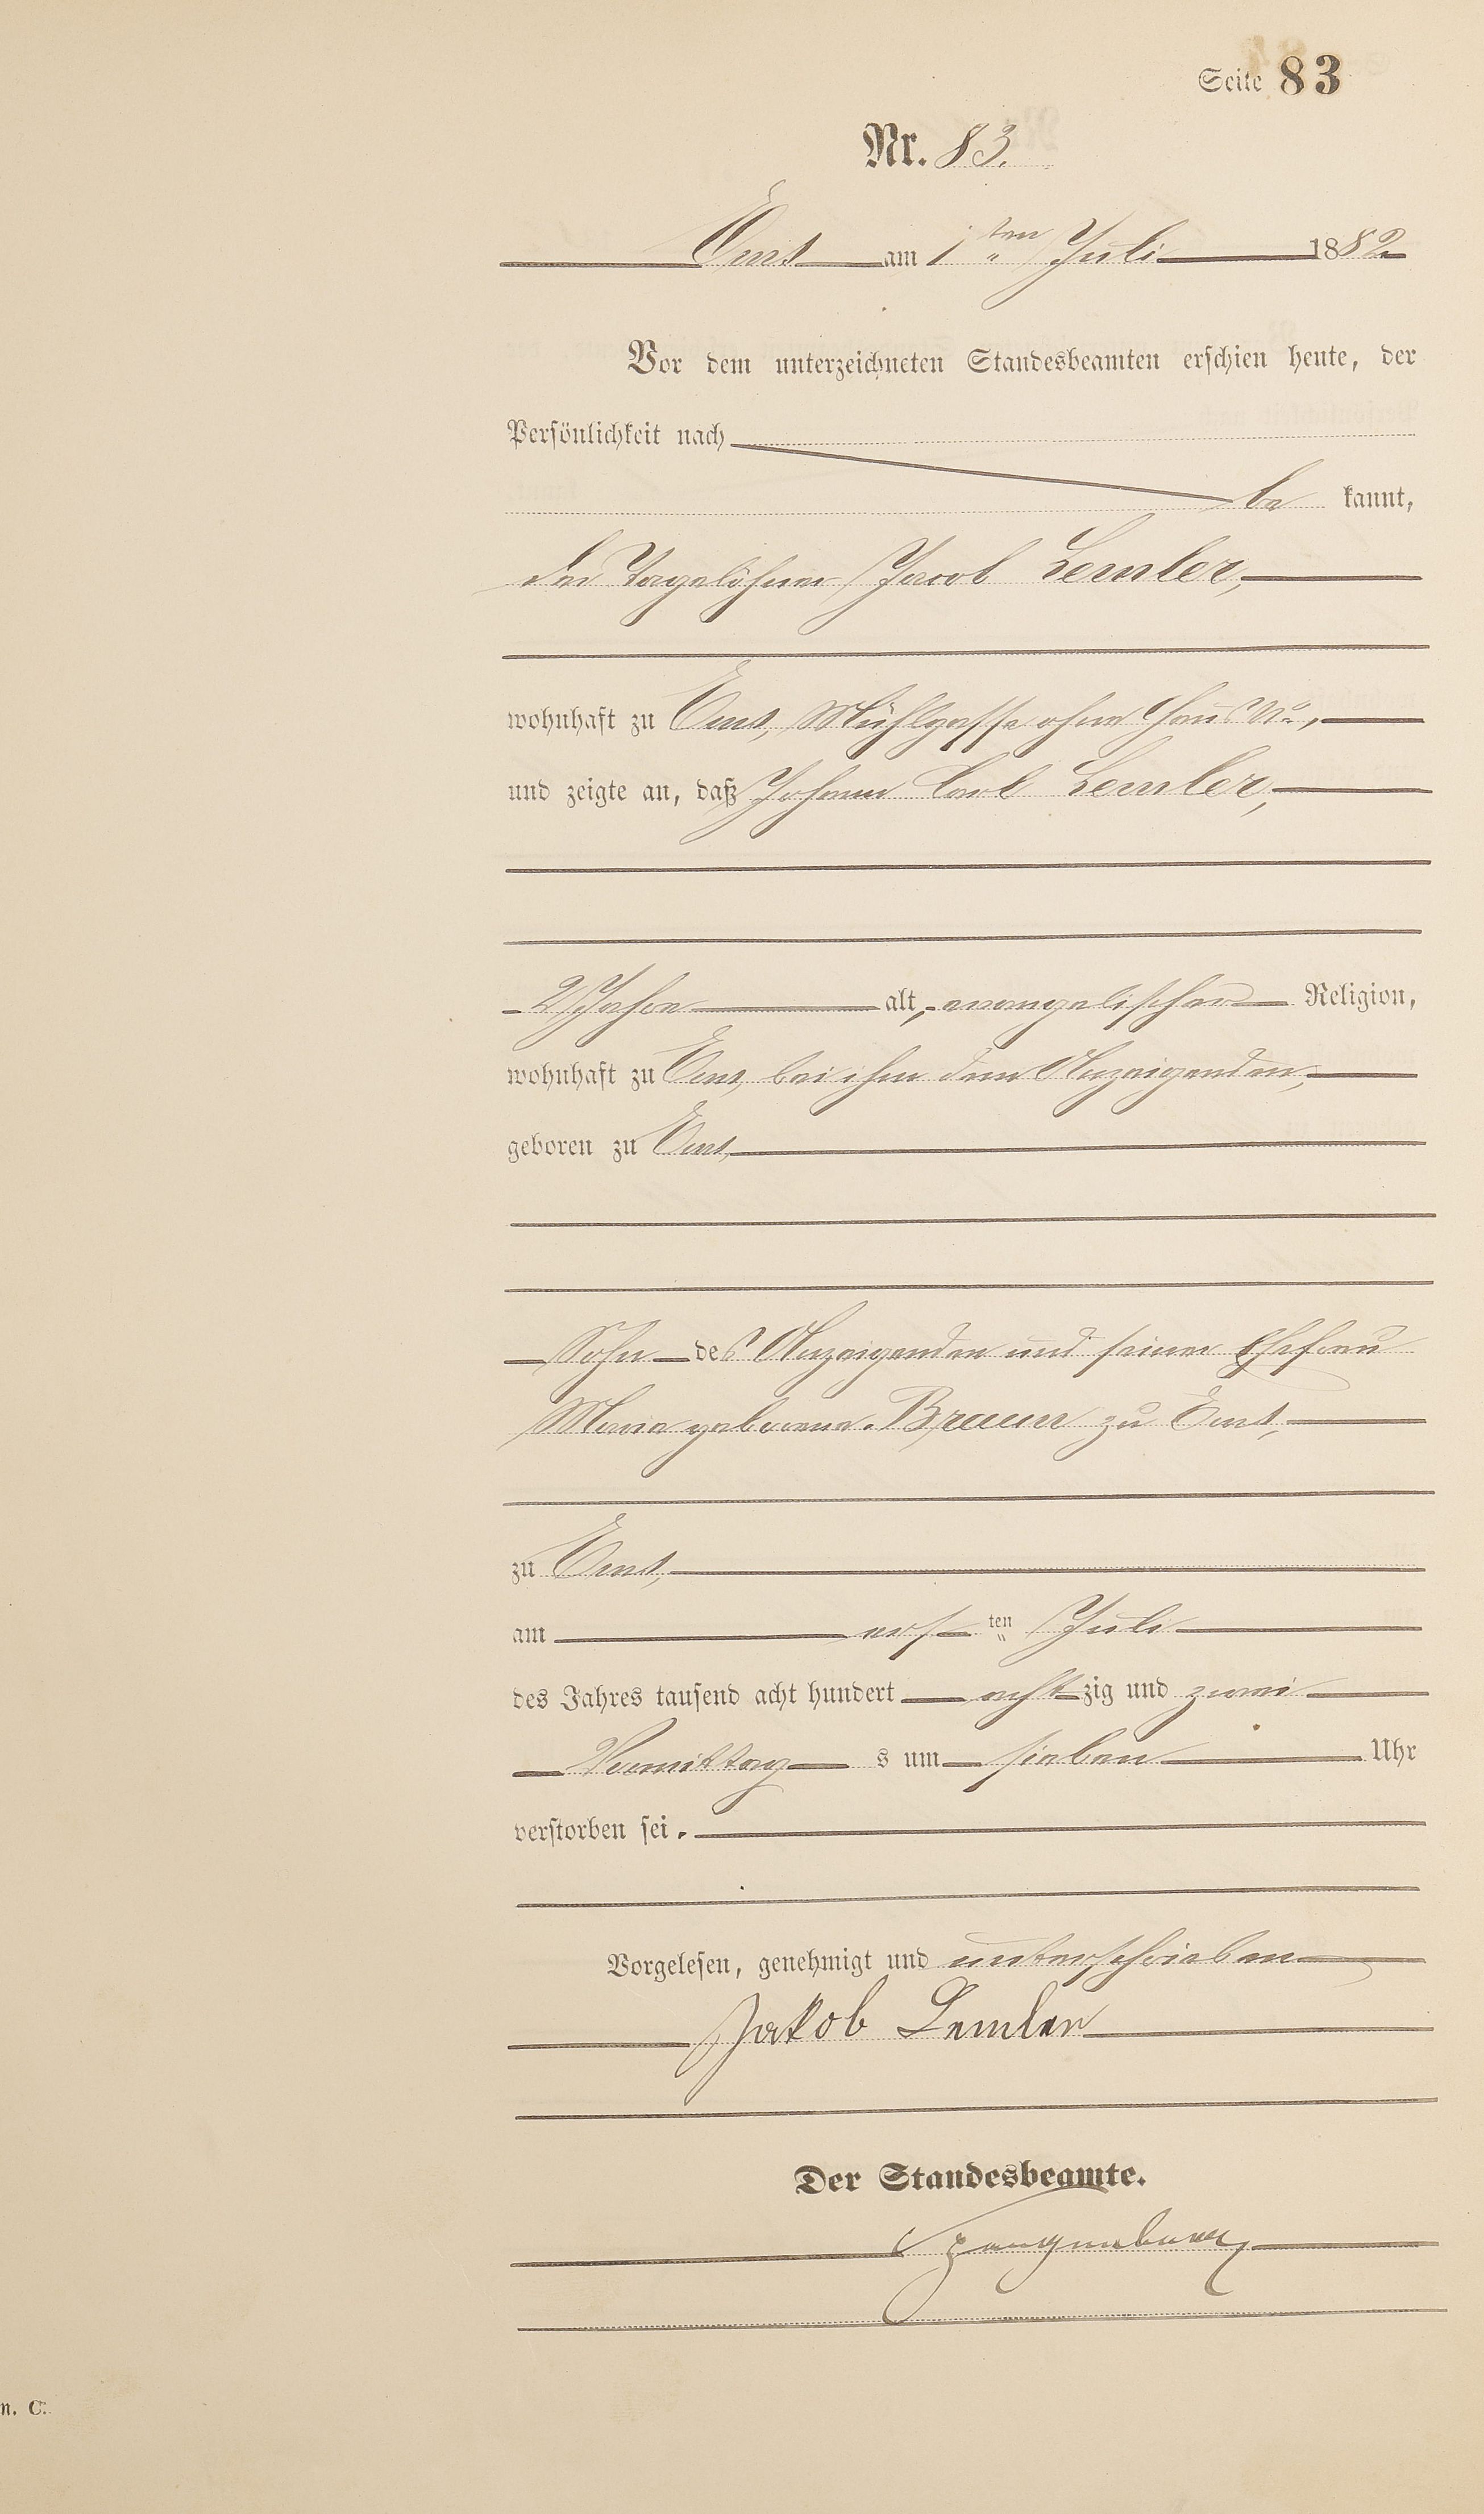 Seite 83
Nr. 83.
Ems am 1ten Juli 1882
Vor dem unterzeichneten Standesbeamten erschien heute, der
Persönlichkeit nach
be kannt,
der Tagelöhner Jacob Lemler,
wohnhaft zu Ems, Mühlgasse ohne Haus No.,
und zeigte an, daß Johann Carl Lemler,
2 Jahre alt, evangelischer Religion,
wohnhaft zu Ems, bei ihm dem Anzeigenden,
geboren zu Ems,
Sohn des Anzeigenden und seiner Ehefrau
Maria geborene Braun zu Ems,
zu Ems,
am ersten Juli
des Jahres tausend acht hundert achtzig und zwei
Vormittags um sieben Uhr
verstorben sei.
Vorgelesen, genehmigt und unterschrieben
Jakob Lemler
Der Standesbeamte.
n. C.